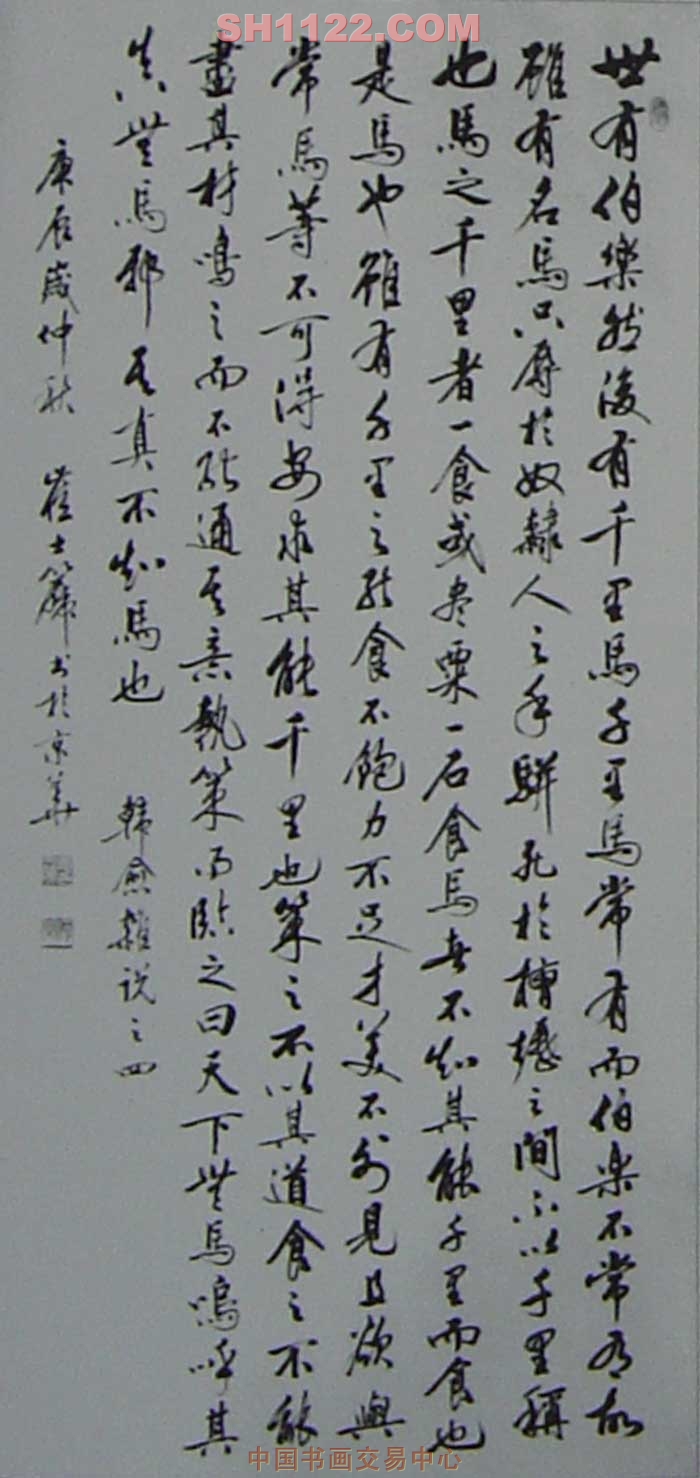 SH1122.COM
世有伯樂然後有千里馬千里馬常有而伯樂不常有故
雖有名馬只辱於奴隸人之手駢死於槽櫪之間不以千里稱
也馬之千里者一食或盡粟一石食馬者不知其能千里而食也
是馬也雖有千里之能食不飽力不足才美不外見且欲與
常馬等不可得安求其能千里也策之不以其道食之不能
盡其材鳴之而不能通其意執策而臨之曰天下無馬嗚呼其
真無馬邪其真不知馬也 韓愈雜說之四
庚辰歲仲秋 崔士簾書於京華
中国书画交易中心